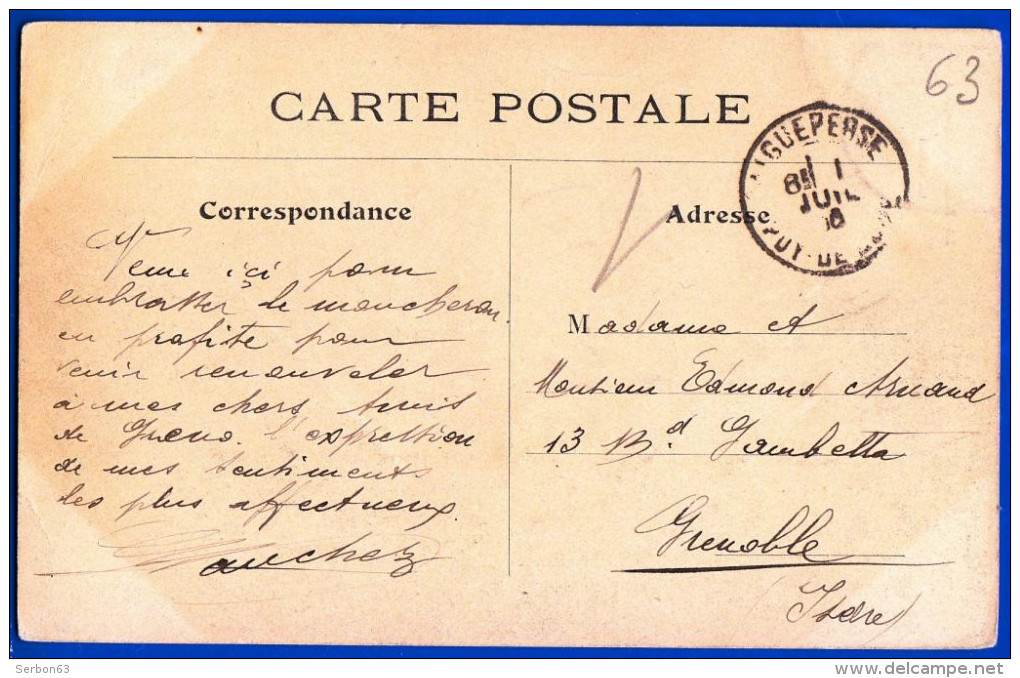 63
CARTE POSTALE
AIGUEPERSE
8E 1
JUIL
PUY-DE-DOME
Correspondance
Adresse
Venu ici pour
embrasser le moucheron.
en profite pour
venir renouveler
à mes chers amis
de Greno. l'expression
de mes sentiments
les plus affectueux
Madame et
Monsieur Edmond Arnaud
13 Bd. Gambetta
Grenoble
(Isère)
Serbon63
http://www.delcampe.net